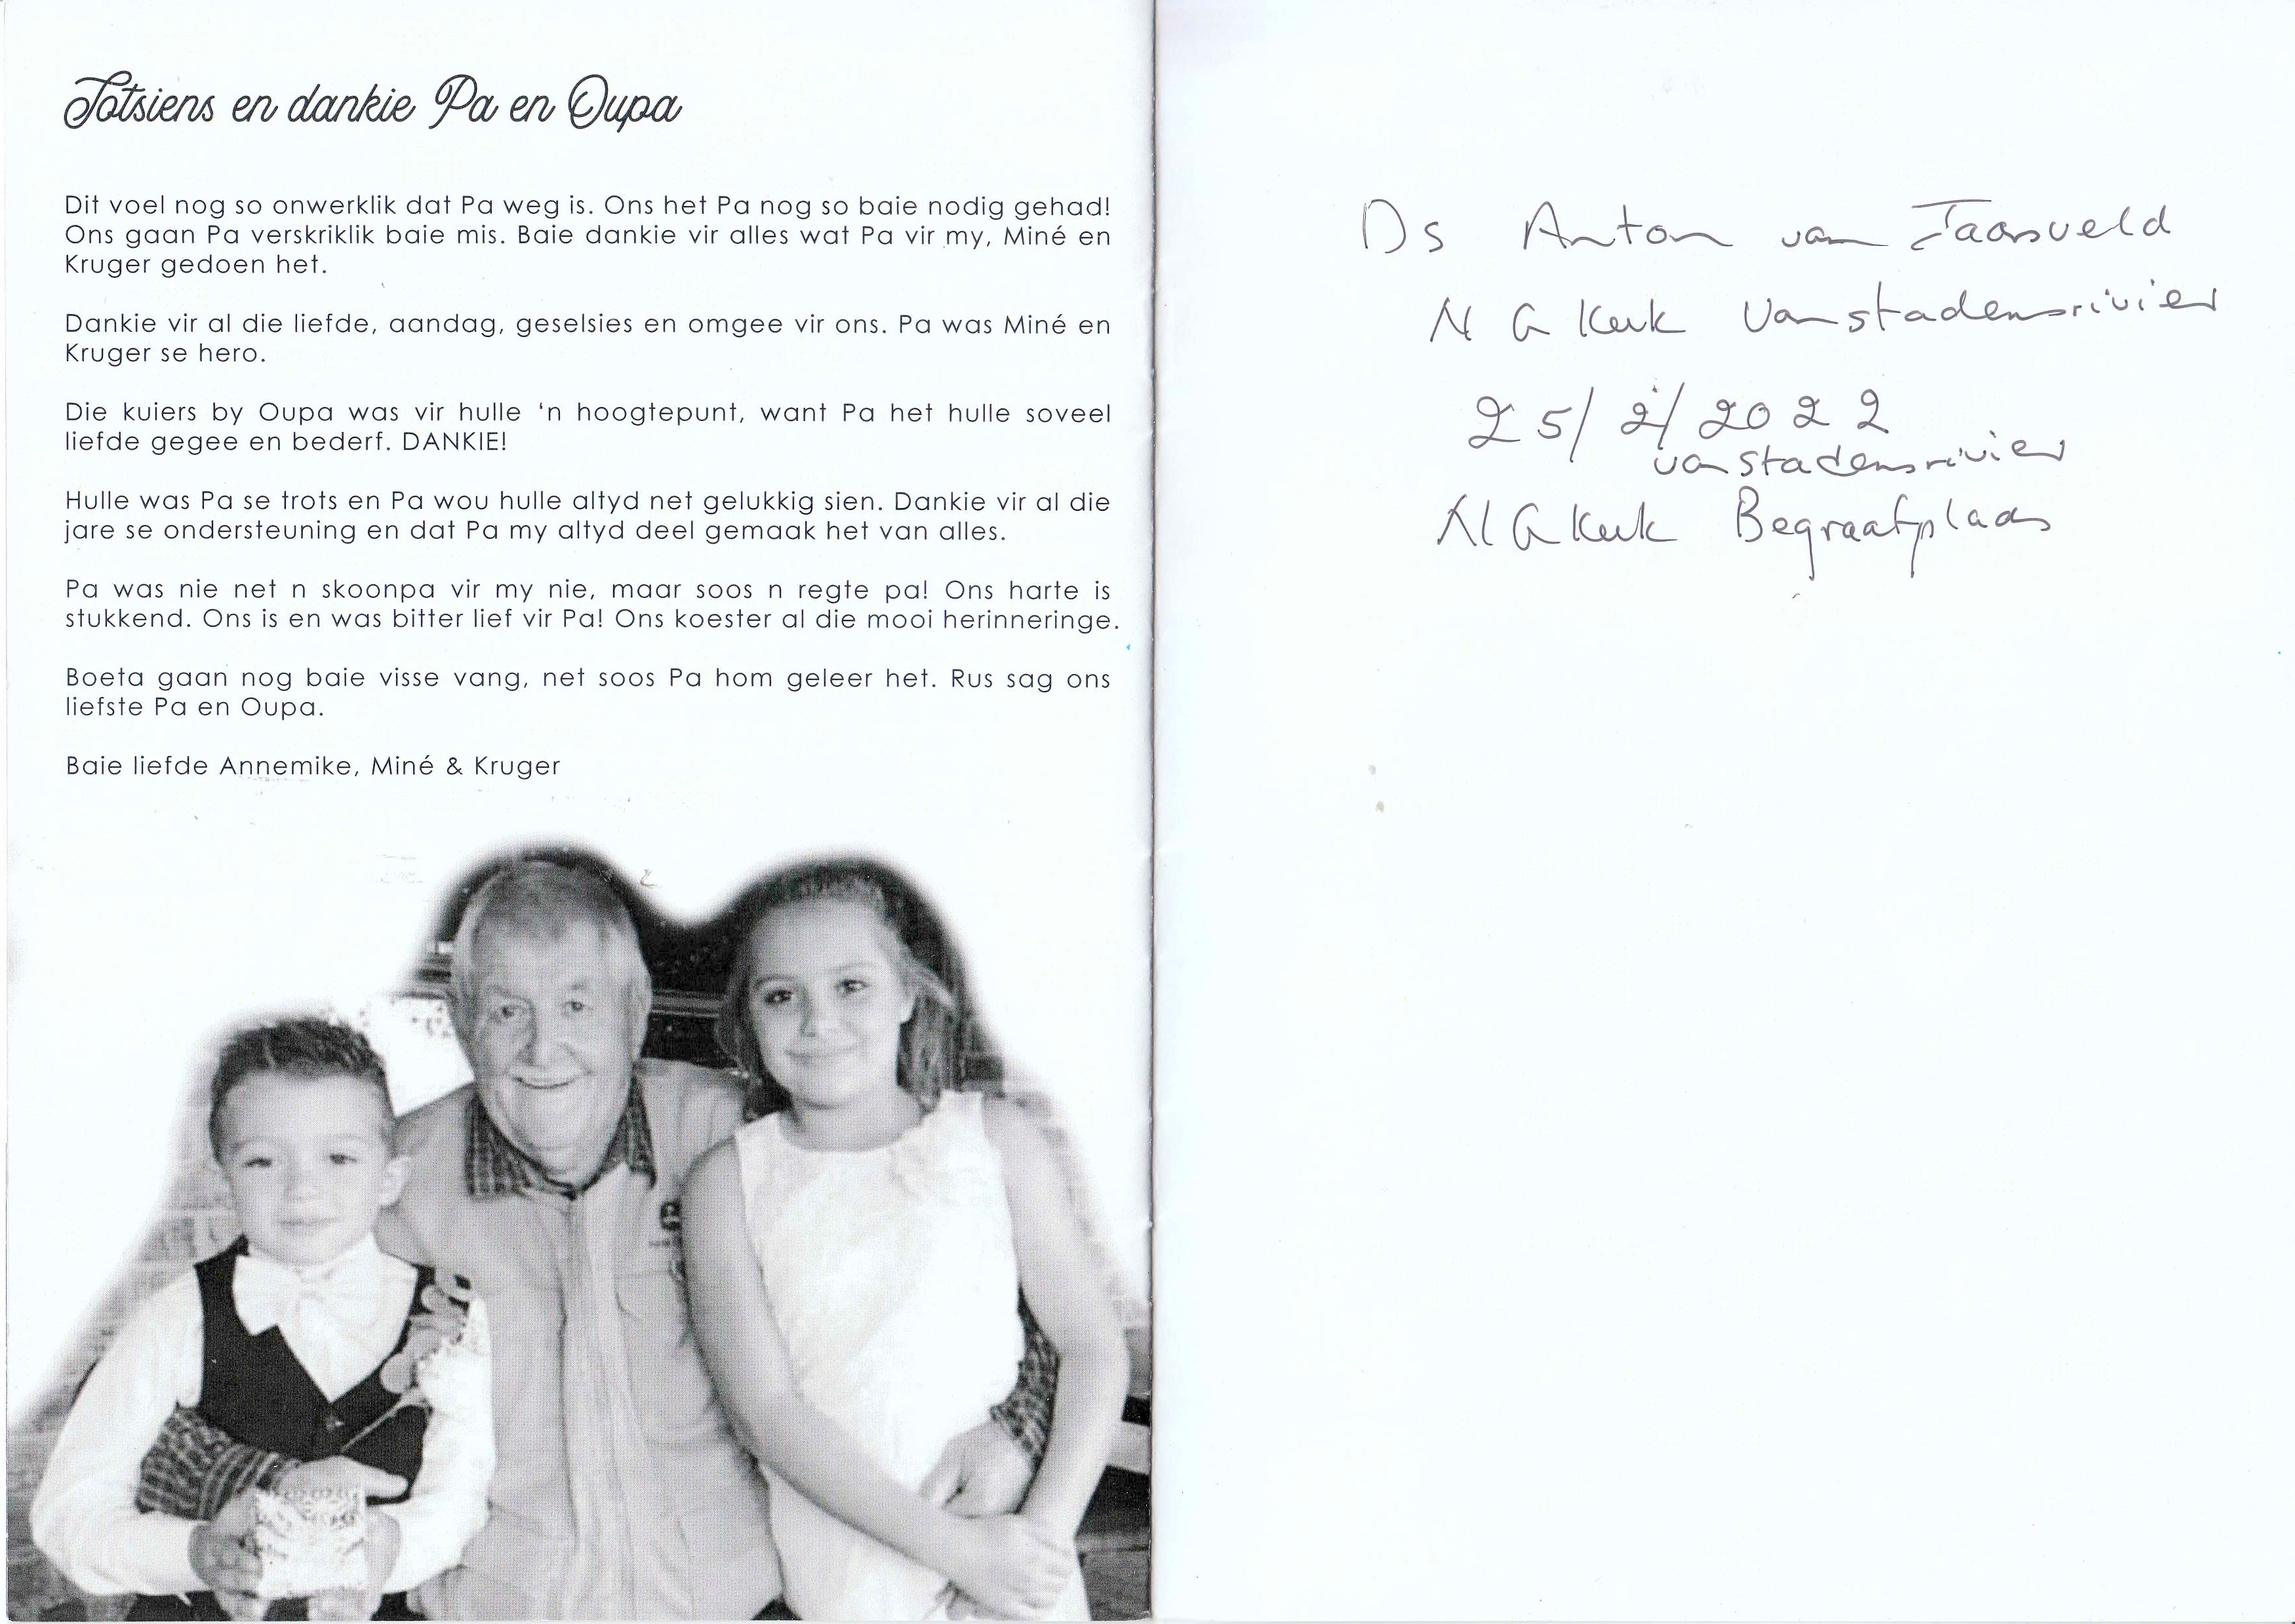 Totsiens en dankie Pa en Oupa
Dit voel nog so onwerklik dat Pa weg is. Ons het Pa nog so baie nodig gehad!
Ons gaan Pa verskriklik baie mis. Baie dankie vir alles wat Pa vir my, Miné en
Kruger gedoen het.
Dankie vir al die liefde, aandag, geselsies en omgee vir ons. Pa was Miné en
Kruger se hero.
Die kuiers by Oupa was vir hulle ‘n hoogtepunt, want Pa het hulle soveel
liefde gegee en bederf. DANKIE!
Hulle was Pa se trots en Pa wou hulle altyd net gelukkig sien. Dankie vir al die
jare se ondersteuning en dat Pa my altyd deel gemaak het van alles.
Pa was nie net n skoonpa vir my nie, maar soos n regte pa! Ons harte is
stukkend. Ons is en was bitter lief vir Pa! Ons koester al die mooi herinneringe.
Boeta gaan nog baie visse vang, net soos Pa hom geleer het. Rus sag ons
liefste Pa en Oupa.
Baie liefde Annemike, Miné & Kruger
Ds Anton van Jaarsveld
N G Kerk Vanstadensrivier
25/2/2022
vanstadensrivier
N G Kerk Begraafplaas